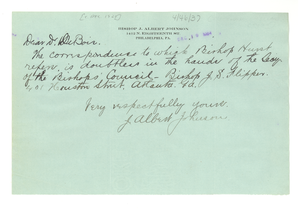 BISHOP J. ALBERT JOHNSON
PHILADELPHIA, PA.
Dear Dr. DuBois,
The correspondence to which Bishop Hurst
refers is doubtless in the hands of the Secy
of the Bishops' Council - Bishop J. S. Flipper,
401 Houston Street, Atlanta, Ga.
Very respectfully yours,
J Albert Johnson